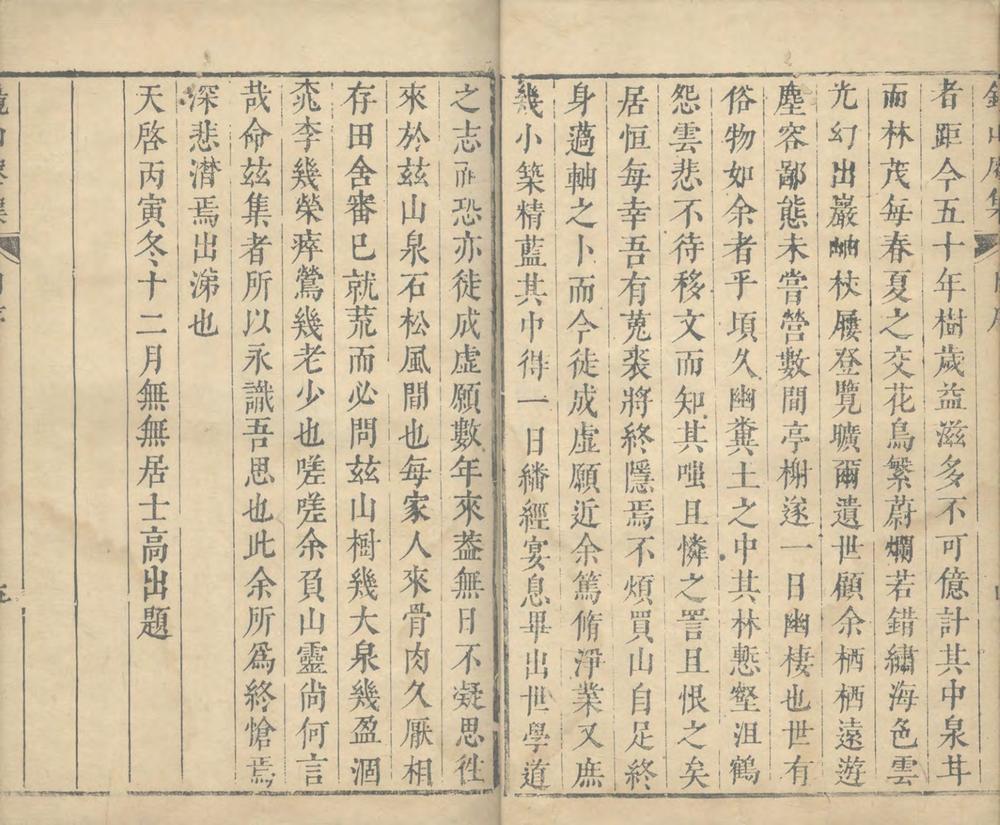 者距今五十年樹歲益滋多不可億計其中泉甘
而林茂每春夏之交花鳥繁蔚爛若錯繡海色雲
光幻出巖岫杖屨登覽曠爾遺世顧余栖栖遠遊
塵容鄙態未嘗營數間亭榭遂一日幽棲也世有
俗物如余者乎頃久幽糞土之中其林慙壑沮鶴
怨雲悲不待移文而知其嗤且憐之詈且恨之矣
居恒每幸吾有菟裘將終隱焉不煩買山自足終
身薖軸之卜而今徒成虛願近余篤脩淨業又庶
幾小築精藍其中得一日繙經宴息畢出世學道
之志而恐亦徒成虛願數年來蓋無日不凝思徃
來於兹山泉石松風間也每家人來骨肉久厭相
存田舍審已就荒而必問兹山樹幾大泉幾盈涸
桃李幾榮瘁鶯幾老少也嗟嗟余負山靈尚何言
哉命兹集者所以永識吾思也此余所爲終愴焉
深悲潸焉出涕也
天啓丙寅冬十二月無無居士高出題